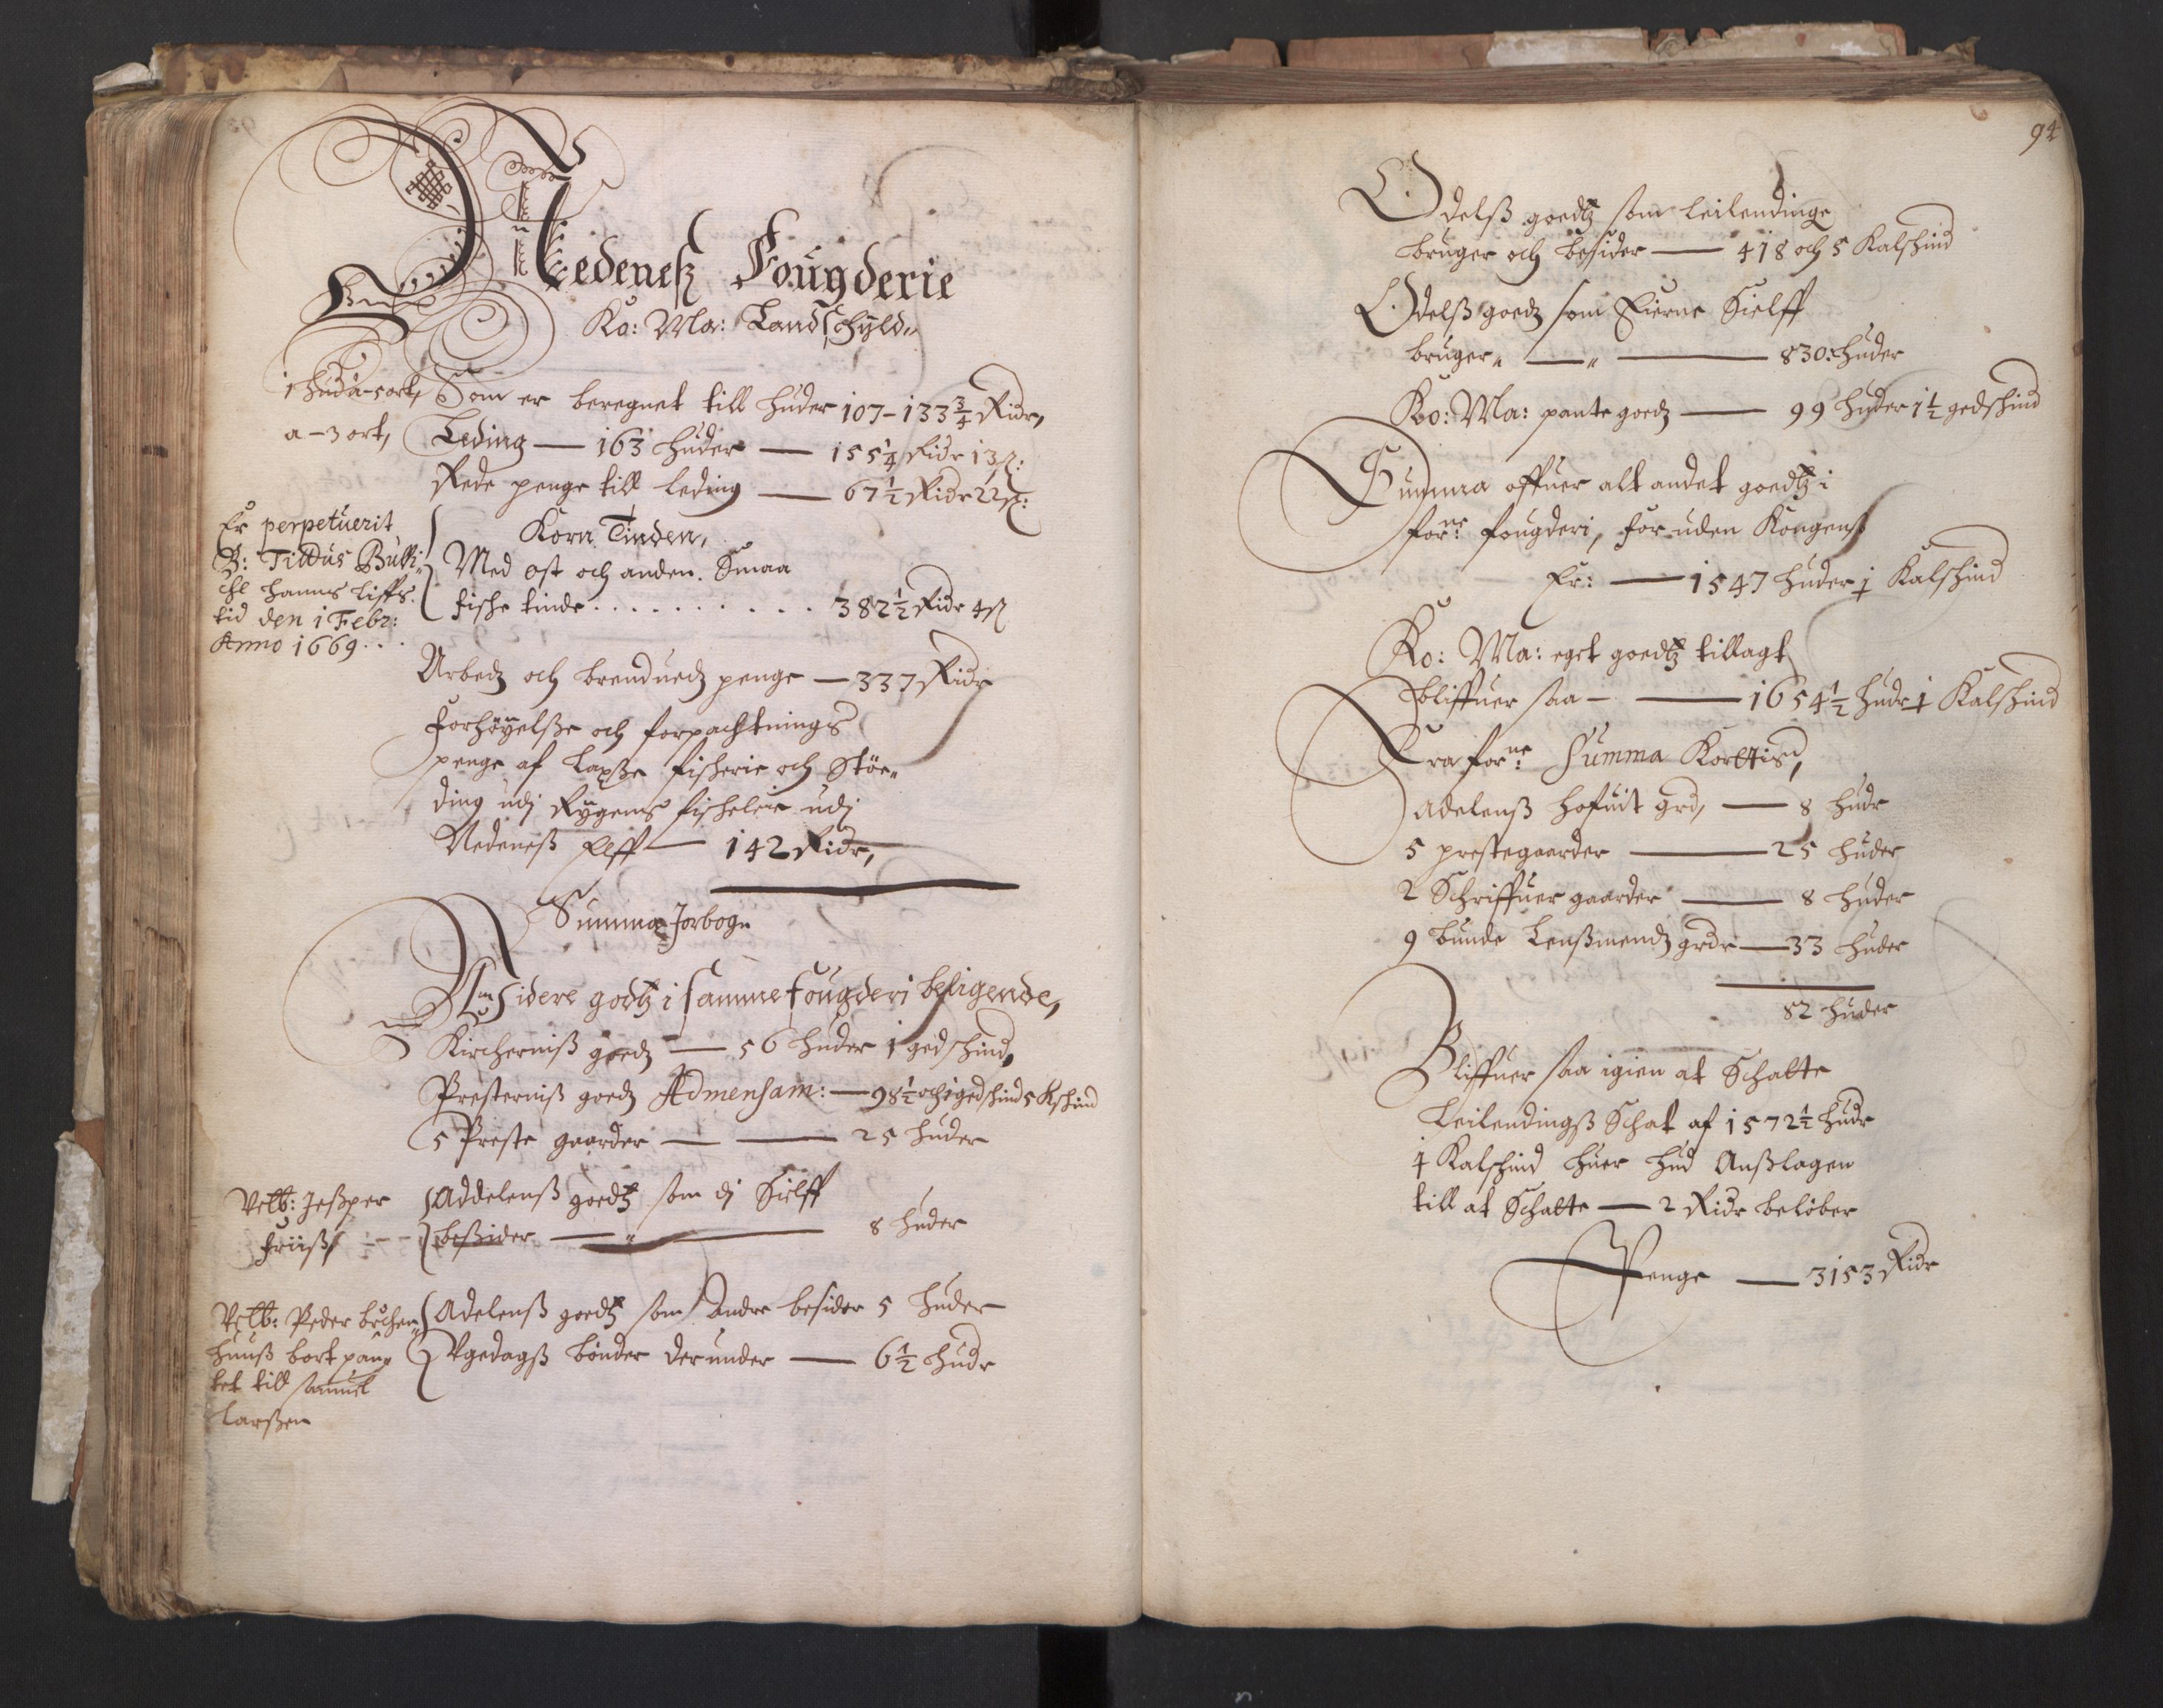 Nedeneß Fougderie
Ko: Ma: Landschyld„
1 hud a - 5 ort, Som er beregnet till huder 107 - 133 3/4 Ridr,
a - 3 ort, Leding — 163 huder — 155 1/4 Ridr 13 ß:
Rede penge till leding — 67 1/2 Ridr 22 ß:
Er perpetuerit
H: Tittus Bulli„
che hanns liffs
tid den 1 Febr:
Anno 1669. . .
Korn Tinden,
Med ost och anden Smaa
fiske tinde . . . . . . . . . . 382 1/2 Ridr 4 ß
Arbedz och brenduedz penge — 337 Ridr
Forhøyelße och forpachtnings
penge af Laxße fischerie och Støe„
ding udj Rygens fischeleie udj
Nedeneß Elff — 142 Ridr,
Summa Jorbogn
Videre godtz i samme fougderi beligende,
Kircherniß goedz — 56 huder 1 gedschind,
Presterniß goedz Admensam: — 98 1/2 och 1 gedschind 5 Kschind
5 Preste gaarder — — 25 huder
Velb: Jeßper
Friiß,
Addelenß goedtz som dj Sielff
beßider — „ — 8 huder
Velb: Peder
huuß bort pan„
tet till Samuel
Larßen
Adelenß goedtz som andre besider 5 huder
Vgedagß bønder derunder — 6 1/2 hudr
94
Odelß goedtz som leilendinge
bruger och besider — 418 och 5 Kalschind
Odelß goedz som Eierne Sielff
bruger„ — „ — 830: huder
Ko: Ma: pante goedz — 99 huder 1 1/2 gedschind
Summa offuer alt andet goedtz i
forne: fougderi, for uden Kongens
Er: — 1547 huder 1 Kalschind
Ko: Ma: eget goedtz tillagt
bliffuer saa — — 1654 1/2 hudr 1 Kalschind
Fra forne: Summa Kortis,
Adelenß hofuit grd, — 8 hudr
5 prestegaarder — 25 huder
2 Schriffuer gaarder — 8 huder
9 bunde Lenßmendz grdr — 33 huder
82 huder
Bliffuer saa igien at Schatte
Leilendingß Schat af 1572 1/2 hudr
1 Kalschind huer hud Anßlagen
till at Schatte — 2 Ridr beløber
Penge — 3153 Ridr